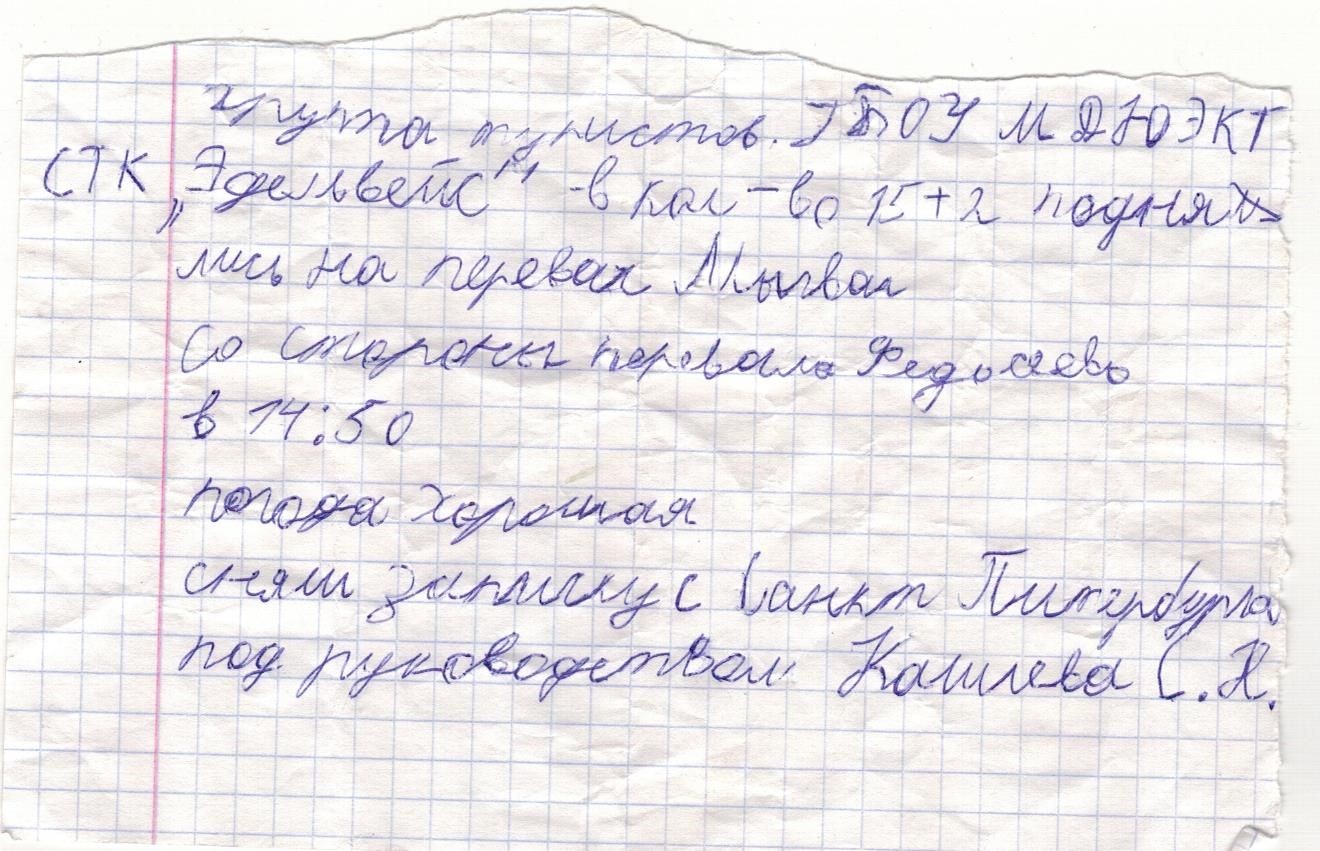 группа туристов. ГБОУ МДЮЭКТ
СТК „Эдельвейс" в кол-во 15+2 подня
лись на перевал
со стороны перевала Федосеева
в 14:50
погода хорошая
сняли записку с Санкт Питербурга
под руководством С.Н.